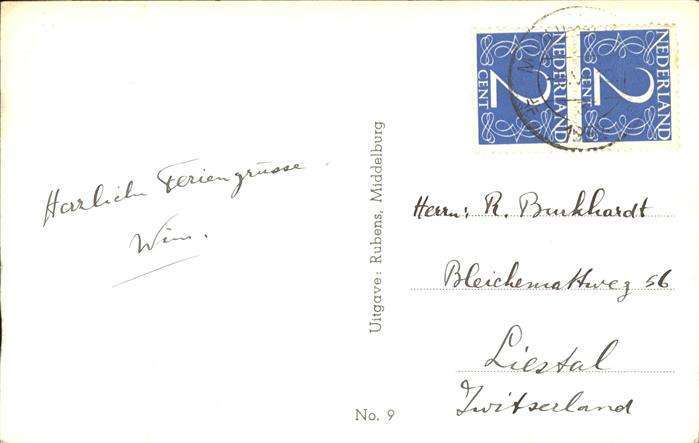 Herzliche Feriengrüsse.
Wim.
Uitgave: Rubens, Middelburg
No. 9
NEDERLAND
2
CENT
NEDERLAND
2
CENT
Herrn: R. Burkhardt
Bleichemattweg 56
Liestal
Zwitserland